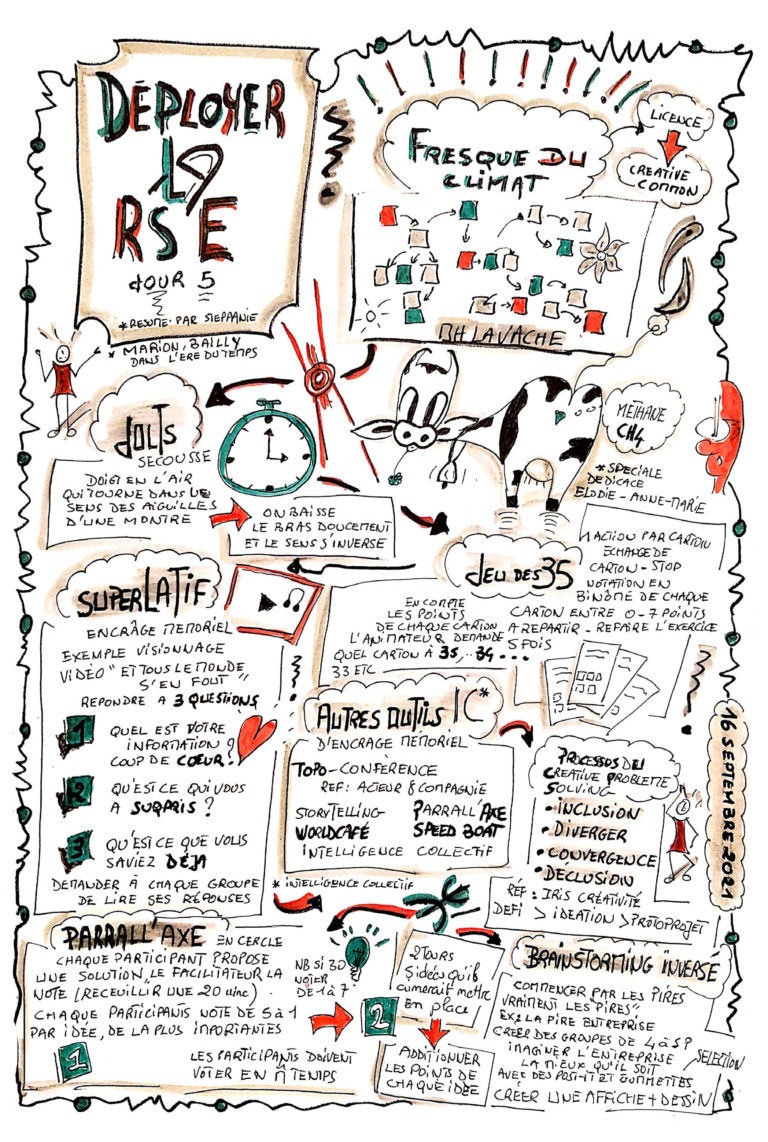 DÉPLOYER
LA
RSE
JOUR 5
* RÉSUMÉ PAR STÉPHANIE
* MARION, BAILLY
DANS L'ÈRE DU TEMPS
FRESQUE DU
CLIMAT
LICENCE
CREATIVE
COMMON
OH LA VACHE
MÉTHANE
CH4
* SPECIALE
DEDICACE
ELODIE - ANNE-MARIE
JOLTS
SECOUSSE
DOIGT EN L'AIR
QUI TOURNE DANS LE
SENS DES AIGUILLES
D'UNE MONTRE
ON BAISSE
LE BRAS DOUCEMENT
ET LE SENS S'INVERSE
JEU DES 35
1 ACTION PAR CARTON
ECHANGE DE
CARTON - STOP
NOTATION EN
BINÔME DE CHAQUE
CARTON ENTRE 0-7 POINTS
A REPARTIR - REFAIRE L'EXERCICE
5 FOIS
EN COMPTE
LES POINTS
DE CHAQUE CARTON
L'ANIMATEUR DEMANDE
QUEL CARTON À 35, .. 34 ...
33 ETC
SUPERLATIF
ENCRÂGE MEMORIEL
EXEMPLE VISIONNAGE
VIDÉO " ET TOUS LE MONDE
S'EN FOUT "
REPONDRE A 3 QUESTIONS
1 QUEL EST VOTRE
INFORMATION
COUP DE COEUR ?
2 QU'EST CE QUI VOUS
A SURPRIS ?
3 QU'EST CE QUE VOUS
SAVIEZ DÉJA
DEMANDER À CHAQUE GROUPE
DE LIRE SES RÉPONSES
AUTRES OUTILS IC*
D'ENCRAGE MEMORIEL
TOPO-CONFÉRENCE
REF: ACTEUR & COMPAGNIE
STORYTELLING PARRALL'AXE
WORLDCAFÉ SPEED BOAT
INTELLIGENCE COLLECTIF
* INTELLIGENCE COLLECTIF
PROCESSUS DU
CREATIVE PROBLEME
SOLVING
• INCLUSION
• DIVERGER
• CONVERGENCE
• DECLUSION
RÉF : IRIS CRÉATIVITÉ
DEFI > IDEATION > PROTOPROJET
16 SEPTEMBRE 2021
PARRALL'AXE
EN CERCLE
CHAQUE PARTICIPANT PROPOSE
UNE SOLUTION, LE FACILITATEUR LA
NOTE (RECEUILLIR UNE 20 aine).
CHAQUE PARTICIPANTS NOTE DE 5 à 1
PAR IDÉE, DE LA PLUS IMPORTANTES
NB SI 30
NOTER
DE 1 à 7
1
LES PARTICIPANTS DOIVENT
VOTER EN M̂ TEMPS
2
2 TOURS
5 idées qu'il
aimerait mettre
en place
ADDITIONNER
LES POINTS DE
CHAQUE IDÉE
BRAINSTORMING INVERSÉ
COMMENCER PAR LES PIRES
VRAIMENT LES "PIRES"
EX: LA PIRE ENTREPRISE
CREER DES GROUPES DE 4 à 5 P
IMAGINER L'ENTREPRISE
LA MIEUX QU'IL SOIT
AVEC DES POST-IT ET GOMMETTES
SELECTION
CRÉER UNE AFFICHE + DESSIN